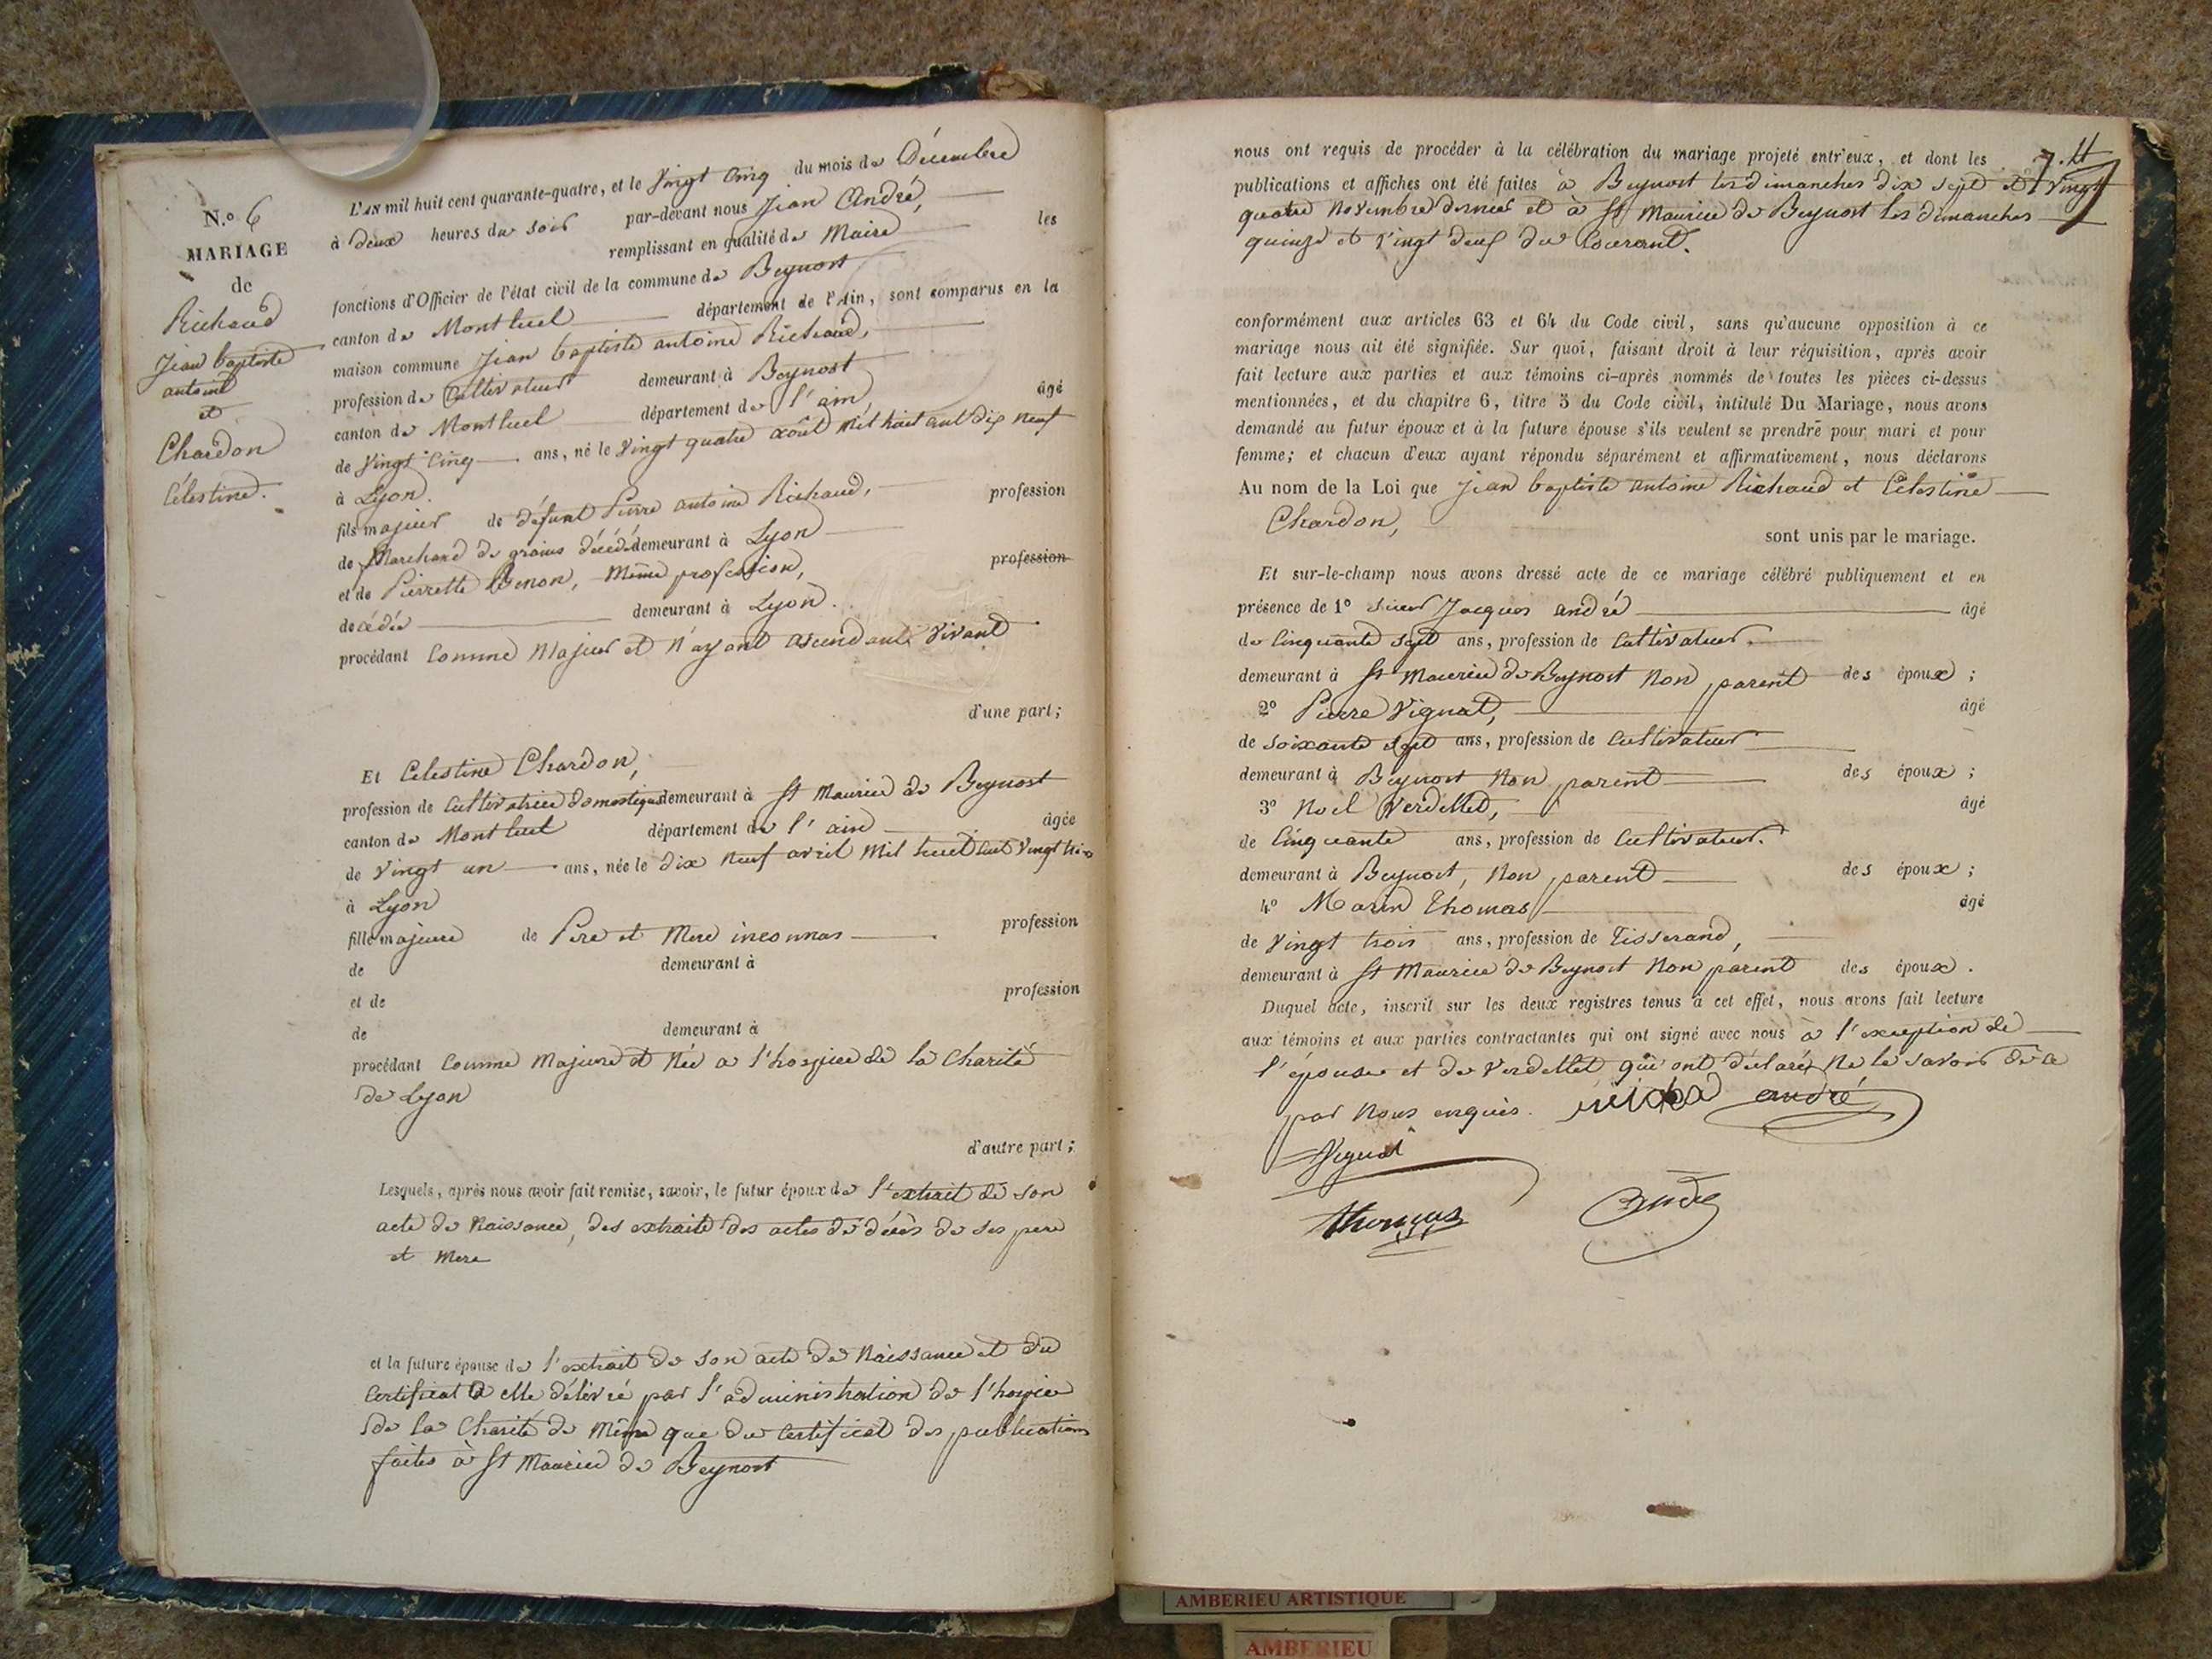 N.o 6
MARIAGE
de
Richaud
Jean baptiste
antoine
et
Chardon
Célestine.
L'AN mil huit cent quarante-quatre, et le Vingt Cinq du mois de Décembre
à deux heures du soir par-devant nous Jean André,
remplissant en qualité de Maire les
fonctions d'Officier de l'état civil de la commune de Beynost
canton de Montluel département de l'Ain, sont comparus en la
maison commune Jean baptiste antoine Richaud,
profession de Cultivateur demeurant à Beynost
canton de Montluel département de l'ain, âgé
de Vingt Cinq ans, né le Vingt quatre août mil huit cent dix neuf
à Lyon.
fils majeur de défunt Pierre antoine Richaud, profession
de Marchand de grains décédé demeurant à Lyon
et de Pierrette, Même profession, profession
décédée demeurant à Lyon.
procédant Comme Majeur et n'ayant ascendants Vivant
d'une part;
Et Célestine Chardon,
profession de Cultivatrice domestique demeurant à St Maurice de Beynost
canton de Montluel département de l'ain âgée
de Vingt un ans, née le dix neuf avril mil huit cent Vingt trois
à Lyon
fille majeure de Père et Mère inconnus profession
de demeurant à
et de profession
de demeurant à
procédant Comme Majeure et Née a l'hospice de la Charité
de Lyon
d'autre part;
Lesquels, après nous avoir fait remise, savoir, le futur époux de l'extrait de son
acte de Naissance, des extraits des actes de décès de ses pere
et Mere
et la future épouse de l'extrait de son acte de Naissance et du
Certificat à elle délivré par l'administration de l'hospice
de la Charité de Même que du Certificat des publications
faites à St Maurice de Beynost
7.
nous ont requis de procéder à la célébration du mariage projeté entr'eux, et dont les
publications et affiches ont été faites à Beynost les dimanches dix sept et Vingt
quatre Novembre dernier et à St Maurice de Beynost les dimanches
quinze et Vingt deux du Courant.
conformément aux articles 63 et 64 du Code civil, sans qu'aucune opposition à ce
mariage nous ait été signifiée. Sur quoi, faisant droit à leur réquisition, après avoir
fait lecture aux parties et aux témoins ci-après nommés de toutes les pièces ci-dessus
mentionnées, et du chapitre 6, titre 5 du Code civil, intitulé Du Mariage, nous avons
demandé au futur époux et à la future épouse s'ils veulent se prendre pour mari et pour
femme; et chacun d'eux ayant répondu séparément et affirmativement, nous déclarons
Au nom de la Loi que Jean baptiste antoine Richaud et Célestine
Chardon,
sont unis par le mariage.
Et sur-le-champ nous avons dressé acte de ce mariage célébré publiquement et en
présence de 1o sieur Jacques andré âgé
de Cinquante sept ans, profession de Cultivateur
demeurant à St Maurice de Beynost Non parent des époux;
2o Pierre Vignat, âgé
de soixante sept ans, profession de Cultivateur
demeurant à Beynost Non parent des époux;
3o Noel Verdellet, âgé
de Cinquante ans, profession de Cultivateur.
demeurant à Beynost, Non parent des époux;
4o Marin Thomas âgé
de Vingt trois ans, profession de Tisserand,
demeurant à St Maurice de Beynost Non parent des époux.
Duquel acte, inscrit sur les deux registres tenus à cet effet, nous avons fait lecture
aux témoins et aux parties contractantes qui ont signé avec nous à l'exception de
l'épouse et de Verdellet qui ont déclaré Ne le savoir de ce
par Nous enquis. andré
Vignat
thomas André
AMBERIEU ARTISTIQUE
AMBERIEU